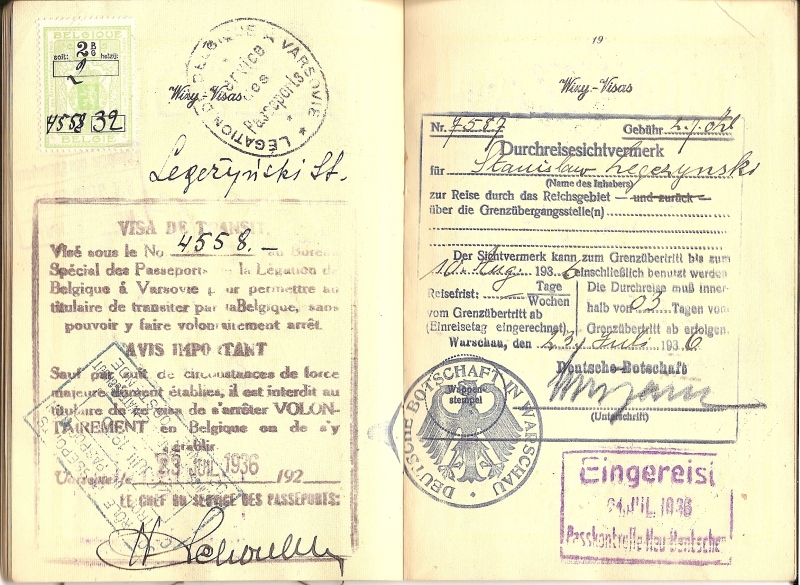 BELGIQUE
soit: 2 B 6 hetzij:
2
4558 32
BELGIE
LÉGATION DE BELGIQUE À VARSOVIE
Service des Passeports
Wizy-Visas
Legeżyński St.
VISA DE TRANSIT.
Visé sous le No 4558.- au Bureau
Spécial des Passeports de la Légation de
Belgique à Varsovie pour permettre au
titulaire de transiter par la Belgique, sans
pouvoir y faire volontairement arrêt.
AVIS IMPORTANT
Sauf par suit de circonstances de force
majeure dûment établies, il est interdit au
titulaire de ce visa de s'arrêter VOLON-
TAIREMENT en Belgique ou de s'y
établir
23 JUIL 1936 192
LE CHEF DU SERVICE DES PASSEPORTS:
19
Wizy-Visas
Nr. 7587 Gebühr
Durchreisesichtvermerk
für Stanislaw Legezynski
(Name des Inhabers)
zur Reise durch das Reichsgebiet — und zurück —
über die Grenzübergangsstelle(n)
Der Sichtvermerk kann zum Grenzübertritt bis zum
10. Aug. 1936 einschließlich benutzt werden
Reisefrist: Tage Wochen
vom Grenzübertritt ab
(Einreisetag eingerechnet)
Die Durchreise muß inner-
halb von 03 Tagen vom
Grenzübertritt ab erfolgen.
Warschau, den 23. Juli 1936
Deutsche Botschaft
Wappen-
stempel
(Unterschrift)
DEUTSCHE BOTSCHAFT IN WARSCHAU
Eingereist
JUL. 1936
Passkontrolle Neu Bentschen